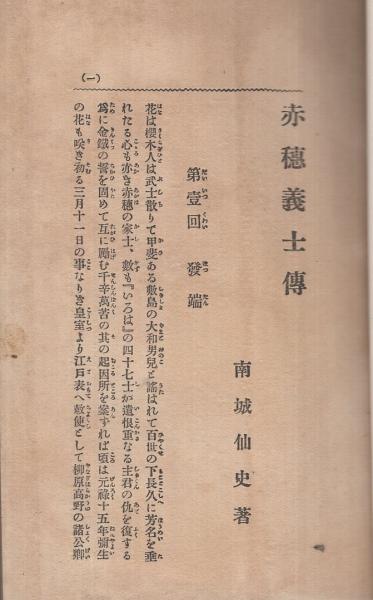 (一)
赤穗義士傳
南城仙史著
第壹回 發端
花は櫻木人は武士散りて甲斐ある敷島の大和男兒と謠はれて百世の下長久に芳名を垂
れたる心も赤き赤穗の家士、數も『いろは』の四十七士が遺恨重なる主君の仇を復する
爲に金鐵の誓を固めて互に勵む千辛萬苦の其の起因所を案ずれば頃は元祿十五年彌生
の花も咲き初る三月十一日の事なりき皇室より江戸表へ敕使として柳原高野の諸公卿